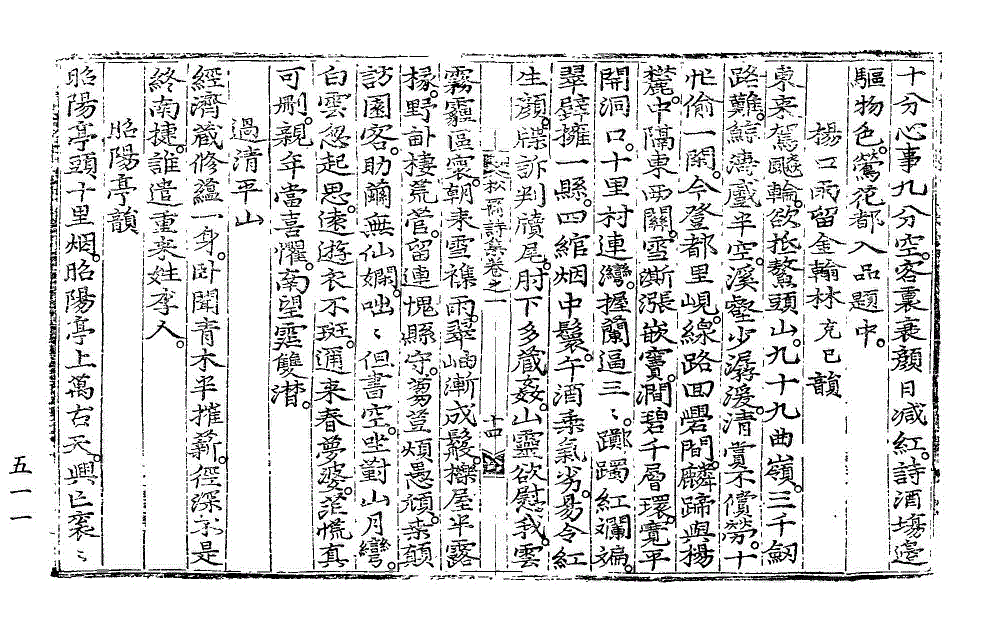 十分心事九分空。客裏衰顔日減紅。詩酒場邊
驅物色。鶯花都入品題中。
楊口雨留金翰林克己韻
東來駕飇輪。欲抵鰲頭山。九十九曲嶺。三千劒
路難。鯨濤戲半空。溪壑少潺湲。清賞不償勞。十
忙偷一閑。今登都里峴。線路回礐間。麟蹄與楊
麓。中隔東西關。雪澌漲嵌竇。澗碧千層環。寬平
開洞口。十里村連灣。握蘭逼三三。躑躅紅斕斒。
翠壁擁一縣。四綰烟中鬟。午酒柔氣劣。易令紅
生顔。牒訴判牘尾。肘下多藏姦。山靈欲慰我。雲
松齋詩集卷之一
十四
霧靄區寰。朝來雪襍雨。翠岫漸成鬆。擽屋半露
椽。野卧棲荒菅。留連愧縣守。蒭荳煩愚頑。來顛
訪園客。助薾無仙嫺。咄咄但書空。坐對山月彎。
白雲忽起思。遠遊衣不斑。通來春夢婆。荒慌真
可刪。親年當喜懼。南望霑雙潸。
過清平山
經濟藏修蘊一身。卧聞青木半摧薪。徑深不是
終南捷。誰遣重來姓李人。
昭陽亭韻
昭陽亭頭十里烟。昭陽亭上萬古天。興亡衮衮
五一一